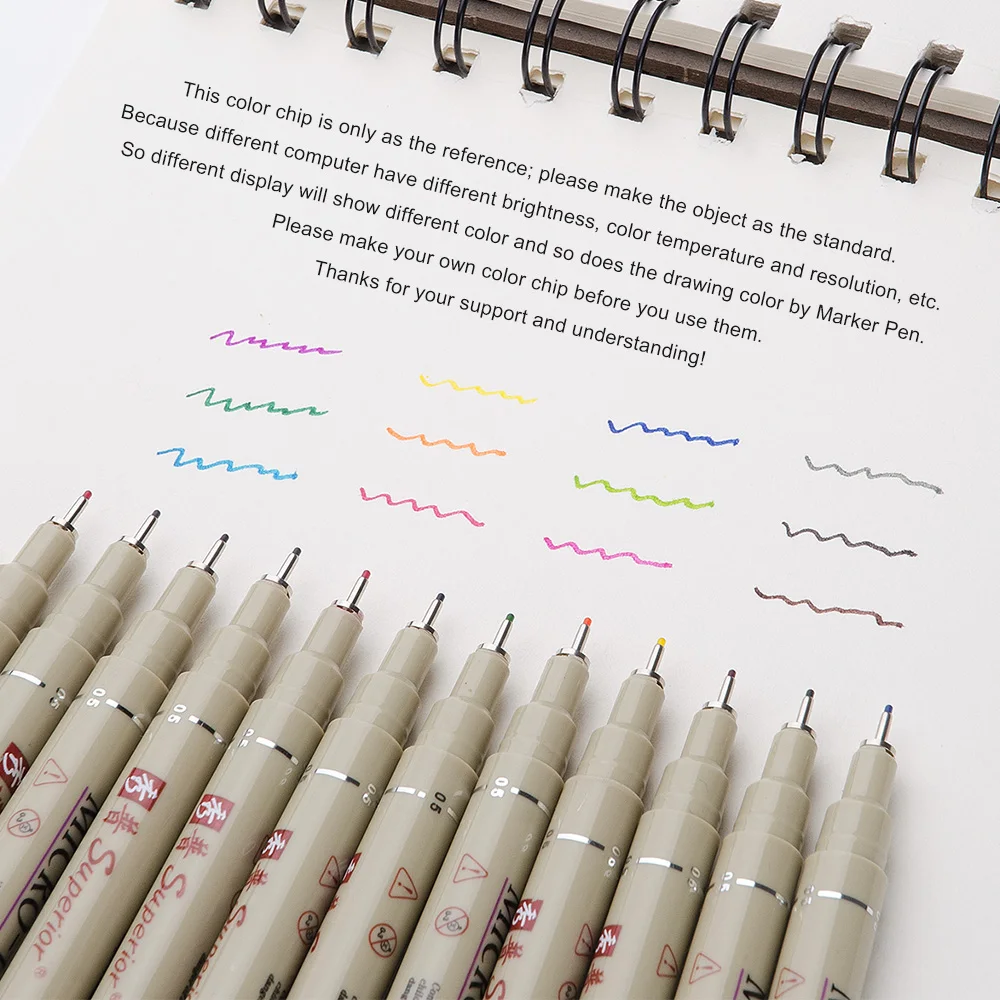 This color chip is only as the reference; please make the object as the standard.
Because different computer have different brightness, color temperature and resolution, etc.
So different display will show different color and so does the drawing color by Marker Pen.
Please make your own color chip before you use them.
Thanks for your support and understanding!
05
05
05
05
05
05
05
05
秀普
Superior®
秀普
Superior
秀普
秀普
秀
MICRO-
MICR